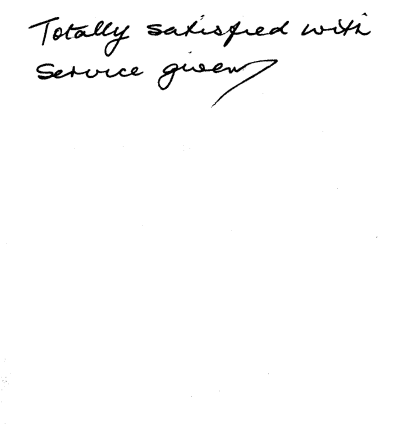 Totally satisfied with
Service given